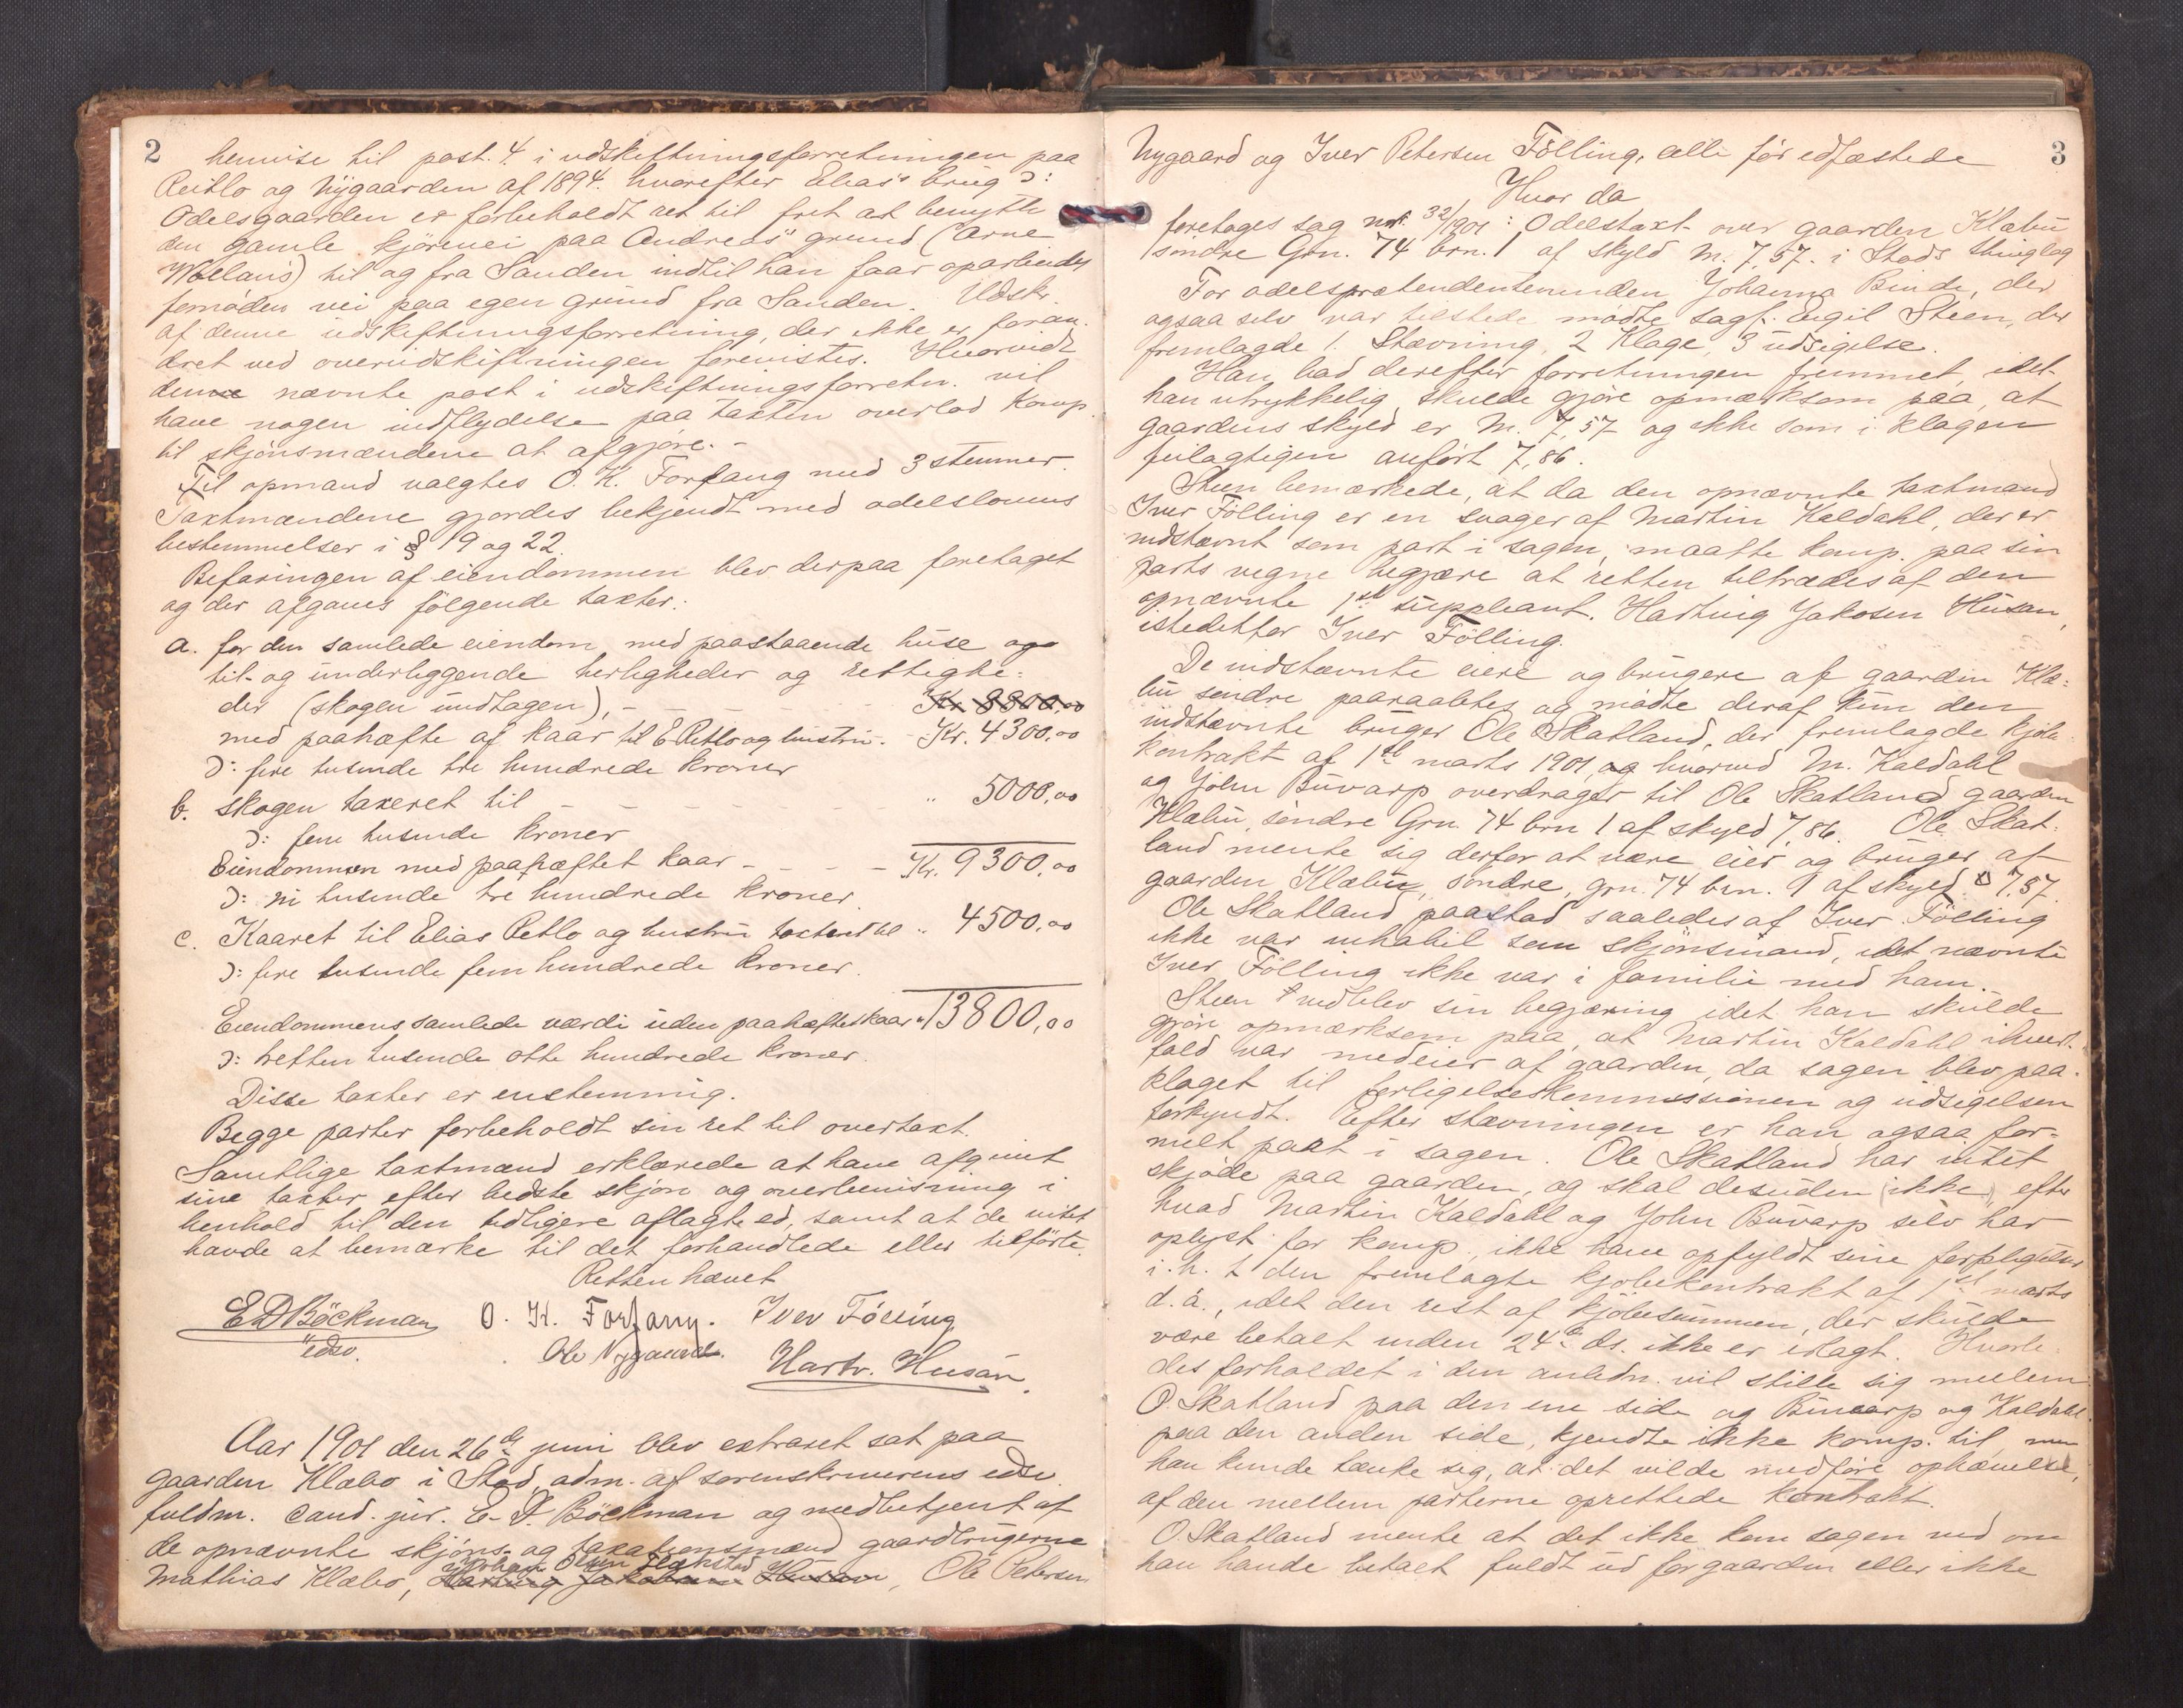 2
henvise til post. 4 i udskiftningsforretningen paa
Reitlo og Nygaarden af 1894. hvorefter Elias's brug ɔ:
Odelsgaarden er forbeholdt ret til fret at benytte
den gamle kjörevei paa Andreas's grund (Arne
Wollans) til og fra Sanden indtil han faar oparbeidet
fornöden vei paa egen grund fra Sanden. Udskr.
af denne udskiftningsforretning, der ikke er foran-
dret ved overudskiftningen forevistes. Hvorvidt
denne nævnte post i udskiftningsforretn. vil
have nogen indflydelse paa taxten overlod Komp.
til skjönsmændene at afgjöre. -
Til opmand valgtes O. K. Forfang med 3 stemmer.
Taxtmændene gjordes bekjendt med odelslovens
bestemmelser i § 19 og 22.
Befaringen af eiendommen blev derpaa foretaget
og der afgaves fölgende taxter:
a. for den samlede eiendom med paastaaende huse og
til- og underliggende herligheder og rettighe-
der (skogen undtagen), - Kr. 8800,00
med paahæfte af kaar til E Retlo og hustru. - Kr. 4300,00
ɔ: fire tusinde tre hundrede kroner
b. skogen taxeret til - " 5000,00
ɔ: fem tusinde kroner
Eiendommen med paahæftet kaar - Kr. 9300,00
ɔ: ni tusinde tre hundrede kroner.
c. Kaaret til Elias Retlo og hustru taxteret til " 4500,00
ɔ: fire tusinde fem hundrede kroner.
Eiendommens samlede værdi uden paahæftet kaar " 13800,00
ɔ: tretten tusinde otte hundrede kroner.
Disse taxter er enstemmig.
Begge parter forbeholdt sin ret til overtaxt.
Samtlige taxtmænd erklærede at have afgivet
sine taxter efter bedste skjön og overbevisning i
henhold til den tidligere aflagte ed, samt at de intet
havde at bemærke til det forhandlede eller tilförte.
Retten hævet
E D Böckman O. K. Forfang. Iver Fölling
edsv. Ole Nygaard. Hartv. Husan.
Aar 1901 den 26de juni blev extraret sat paa
gaarden Klæbo i Stod, adm. af sorenskriverens edsv.
fuldm. cand. jur. E. D. Böckman og medbetjent af
de opnævnte skjöns- og taxationsmænd gaardbrugerne
Johan Olsen
Mathias Klæbo, Hartvig Jakobsen Husan, Ole Petersen
3
Nygaard og Iver Petersen Fölling, alle för edfæstede
Hvor da
foretoges sag nr. 32/1901: Odelstaxt over gaarden Klæbu
söndre Grn. 74 brn. 1 af skyld m. 7,57. i Stods thinglag
For odelsprætendentenenden Johanna Binde, der
ogsaa selv var tilstede mödte sagf. Eigil Steen, der
fremlagde 1. Stævning, 2 Klage, 3 udsigelse.
Han bad derefter forretningen fremmet, idet
han utrykkelig skulde gjöre opmærksom paa, at
gaardens skyld er M. 7,57 og ikke som i klagen
feilagtigen anfört 7,86.
Steen bemærkede, at da den opnævnte taxtmand
Iver Fölling er en svager af Martin Kaldahl, der er
indstævnt som part i sagen, maatte komp. paa sin
parts vegne begjære at retten tiltrædes af den
opnævnte 1ste suppleant. Hartvig Jakosen Husan,
istedetfor Iver Fölling.
De indstævnte eiere og brugere af gaarden Klæ-
bu söndre paaraabtes og mödte deraf kun den
indstævnte bruger Ole Skatland, der fremlagde kjöbe-
kontrakt af 1ste marts 1901, og hvorved M. Kaldahl
og John Buvarp overdrager til Ole Skatland gaarden
Klæbu, söndre Grn. 74 brn 1 af skyld 7,86. Ole Skat-
land mente sig derfor at være eier og bruger af
gaarden Klæbu, söndre, grn. 74 brn. 1 af skyld 7,57.
Ole Skatland paastod saaledes af Iver Fölling
ikke var inhabil som skjönsmand, idet nævnte
Iver Fölling ikke var i familie med ham.
Steen vedblev sin begjæring idet han skulde
gjöre opmærksom paa, at Martin Kaldahl ihvert-
fald var medeier af gaarden, da sagen blev paa-
klaget til forligelseskommissionen og udsigelsen
forkyndt. Efter stævningen er han ogsaa for-
melt part i sagen. Ole Skatland har intet
skjöde paa gaarden, og skal desuden (ikke), efter
hvad Martin Kaldahl og John Buvarp selv har
oplyst for komp., ikke have opfyldt sine forpligtelser
i. h. t den fremlagte kjöbekontrakt af 1ste marts
d. a., idet den rest af kjöbesummen, der skulde
være betalt inden 24de ds. ikke er erlagt. Hvorle-
des forholdet i den anledn. vil stille sig mellem
O. Skatland paa den ene side og Buvarp og Kaldahl
paa den anden side, kjendte ikke komp. til, men
han kunde tænke sig, at det vilde medföre ophævelse,
af den mellem parterne oprettede kontrakt.
O. Skatland mente at det ikke kom sagen ved om
han havde betalt fuldt ud for gaarden eller ikke